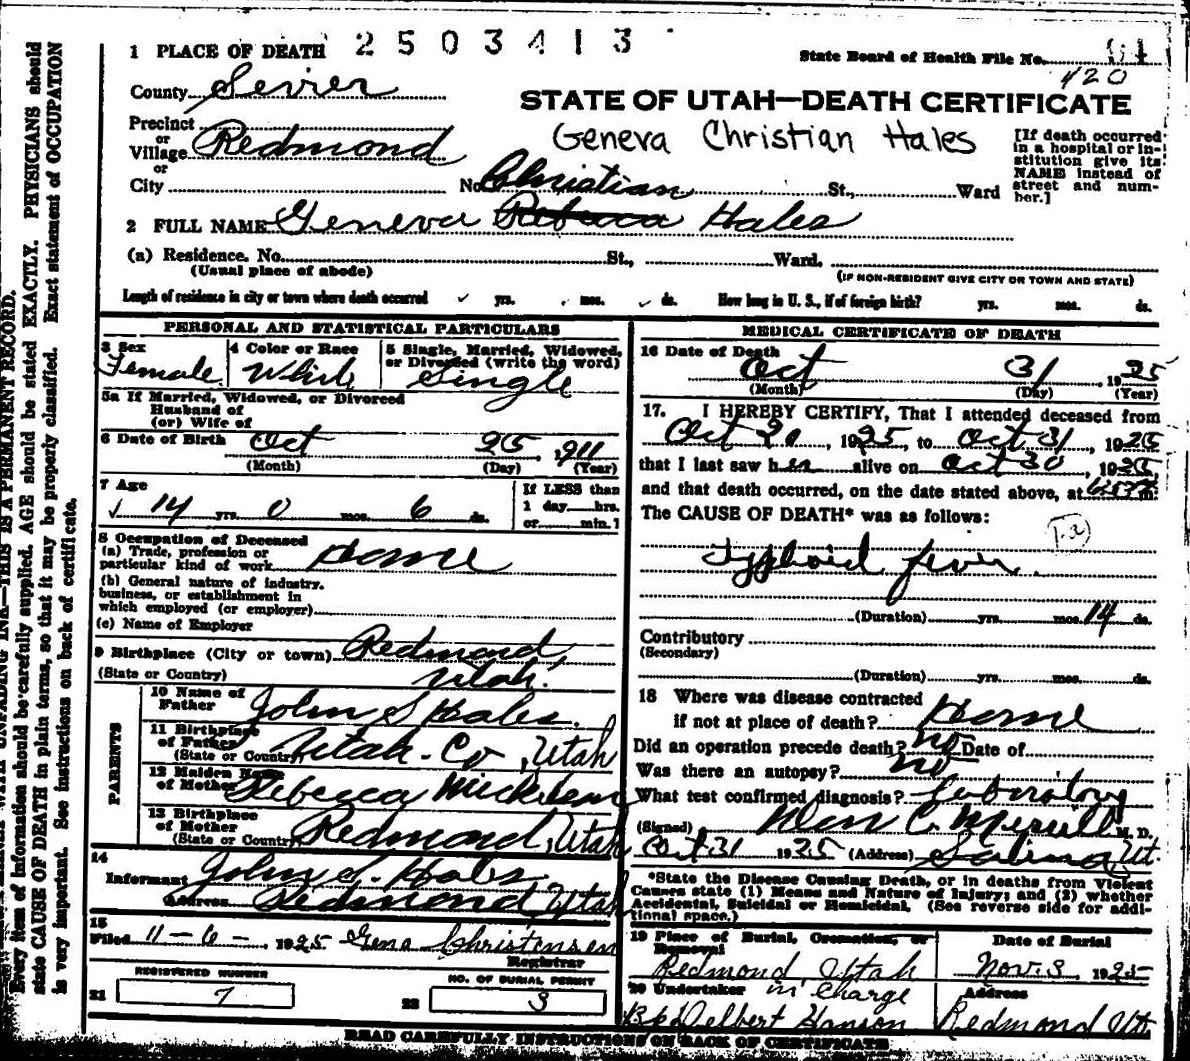 1 PLACE OF DEATH 2503413
State Board of Health File No. 01
420
County Sevier
STATE OF UTAH—DEATH CERTIFICATE
Precinct
or
Village Redmond
Geneva Christian Hales
[If death occurred in a hospital or institution give its NAME instead of street and number.]
or
City No. Christian St., Ward
2 FULL NAME Geneva Rebecca Hales
(a) Residence. No. St., Ward.
(Usual place of abode) (IF NON-RESIDENT GIVE CITY OR TOWN AND STATE)
Length of residence in city or town where death occurred yrs. mos. ds. How long in U. S., if of foreign birth? yrs. mos. ds.
PERSONAL AND STATISTICAL PARTICULARS
3 Sex
Female
4 Color or Race
White
5 Single, Married, Widowed,
or Divorced (write the word)
Single
5a If Married, Widowed, or Divorced
Husband of
(or) Wife of
6 Date of Birth Oct 25, 1911
(Month) (Day) (Year)
7 Age
14 yrs. 0 mos. 6 ds.
If LESS than
1 day hrs.
or min.]
8 Occupation of Deceased
(a) Trade, profession or
particular kind of work Home
(b) General nature of industry,
business, or establishment in
which employed (or employer)
(c) Name of Employer
9 Birthplace (City or town) Redmond,
(State or Country) Utah.
PARENTS
10 Name of
Father John S Hales.
11 Birthplace
of Father
(State or Country) Utah-Co, Utah
12 Maiden Name
of Mother Rebecca Mickelsen
13 Birthplace
of Mother
(State or Country) Redmond, Utah
14
Informant John S. Hales
Address Redmond Utah
15
Filed 11-6-, 1925 Gena Christensen
Registrar
REGISTERED NUMBER
21 7
NO. OF BURIAL PERMIT
22 3
MEDICAL CERTIFICATE OF DEATH
16 Date of Death
Oct 31, 1925
(Month) (Day) (Year)
17. I HEREBY CERTIFY, That I attended deceased from
Oct 20, 1925, to Oct 31, 1925
that I last saw her alive on Oct 30, 1925
and that death occurred, on the date stated above, at m.
The CAUSE OF DEATH* was as follows:
Typhoid fever.
(Duration) yrs. mos. 14 ds.
Contributory
(Secondary)
(Duration) yrs. mos. ds.
18 Where was disease contracted
if not at place of death? Home
Did an operation precede death? no Date of
Was there an autopsy? no
What test confirmed diagnosis? Laboratory
(Signed) Wm C Merrill M. D.
Oct 31 1925 (Address) Salina Ut.
*State the Disease Causing Death, or in deaths from Violent
Causes state (1) Means and Nature of Injury; and (2) whether
Accidental, Suicidal or Homicidal. (See reverse side for additional space.)
19 Place of Burial, Cremation, or
Removal
Redmond Utah
Date of Burial
Nov. 3, 1925
20 Undertaker in charge
Delbert Hanson
Address
Redmond Ut.
READ CAREFULLY INSTRUCTIONS ON BACK OF CERTIFICATE
THIS IS A PERMANENT RECORD.
Every item of information should be carefully supplied. AGE should be stated EXACTLY. PHYSICIANS should
state CAUSE OF DEATH in plain terms, so that it may be properly classified. Exact statement of OCCUPATION
is very important. See instructions on back of certificate.